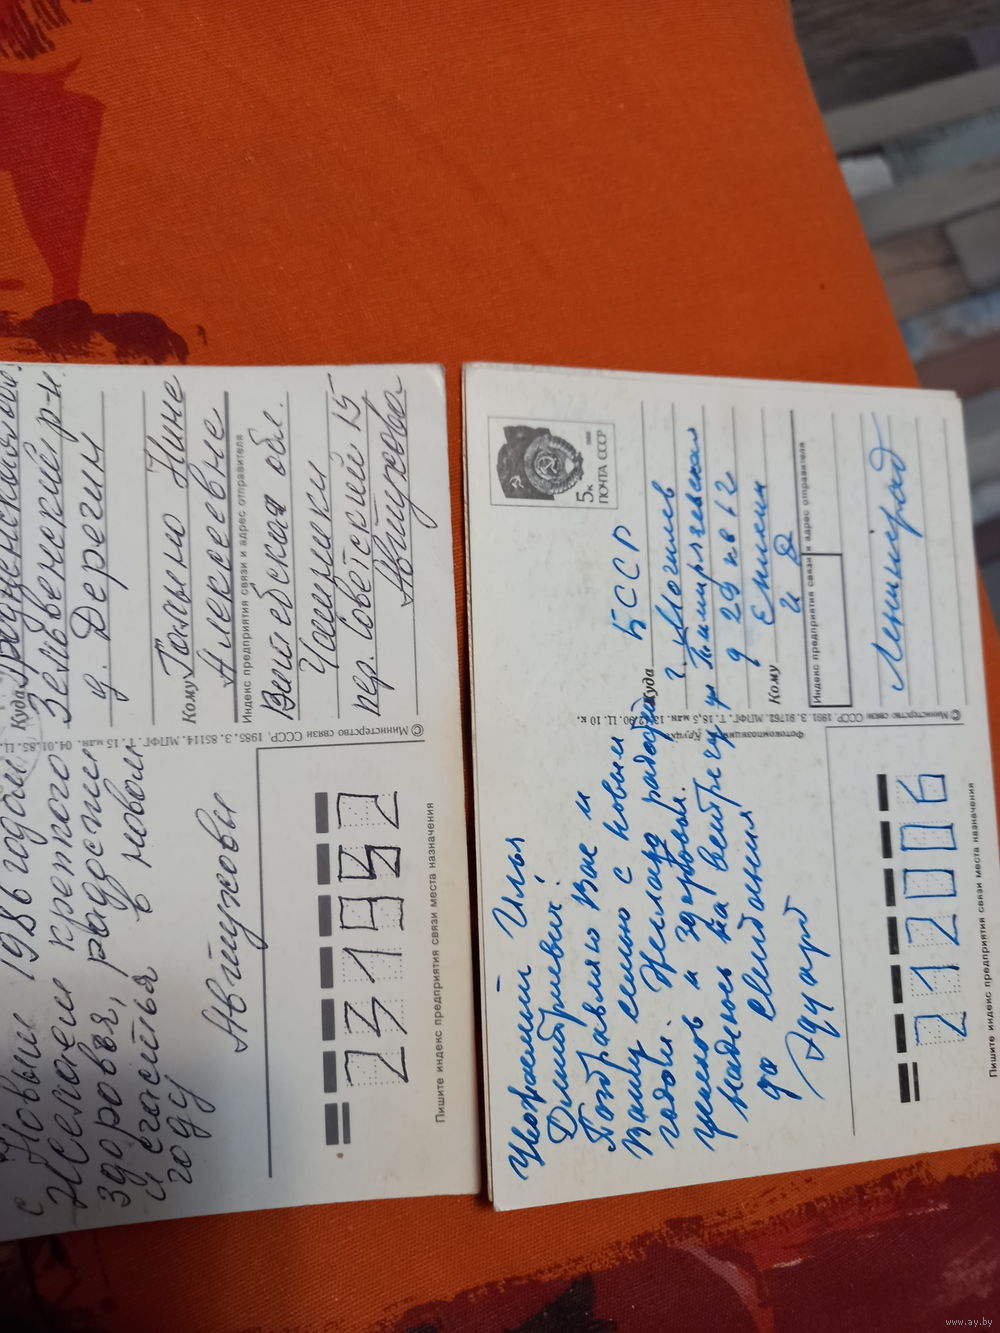 с Новым 1986 годом
Желаем крепкого
здоровья, радости
и счастья в новом
году
Авťужовы
Куда Гродненская обл.
Зельвенский р-н.
д. Деречин
Кому
Нине
Алексеевне
Индекс предприятия связи и адрес отправителя
Витебская обл.
Чашники
пер. Советский 15
© Министерство связи СССР. 1985. З. 85114. МПФГ. Т. 15 млн. 04.01.85. Ц.
231952
Пишите индекс предприятия связи места назначения
Уважаемый Илья
Дмитриевич!
Поздравляю Вас и
Вашу семью с новым
годом. Желаю радости
успехов и здоровья.
Надеюсь на встречу
до свидания
Эдуард
5к
1988
ПОЧТА СССР
Куда БССР
г. Могилев
ул Тимирязевская
д 29 кв 62
Кому
И Д
Индекс предприятия связи и адрес отправителя
Ленинград
© Министерство связи СССР. 1991. З. 91762. МПФГ. Т. 18,5 млн. 13.12.90. Ц. 10 к.
Фотокомпозиция
212006
Пишите индекс предприятия связи места назначения
www.ay.by